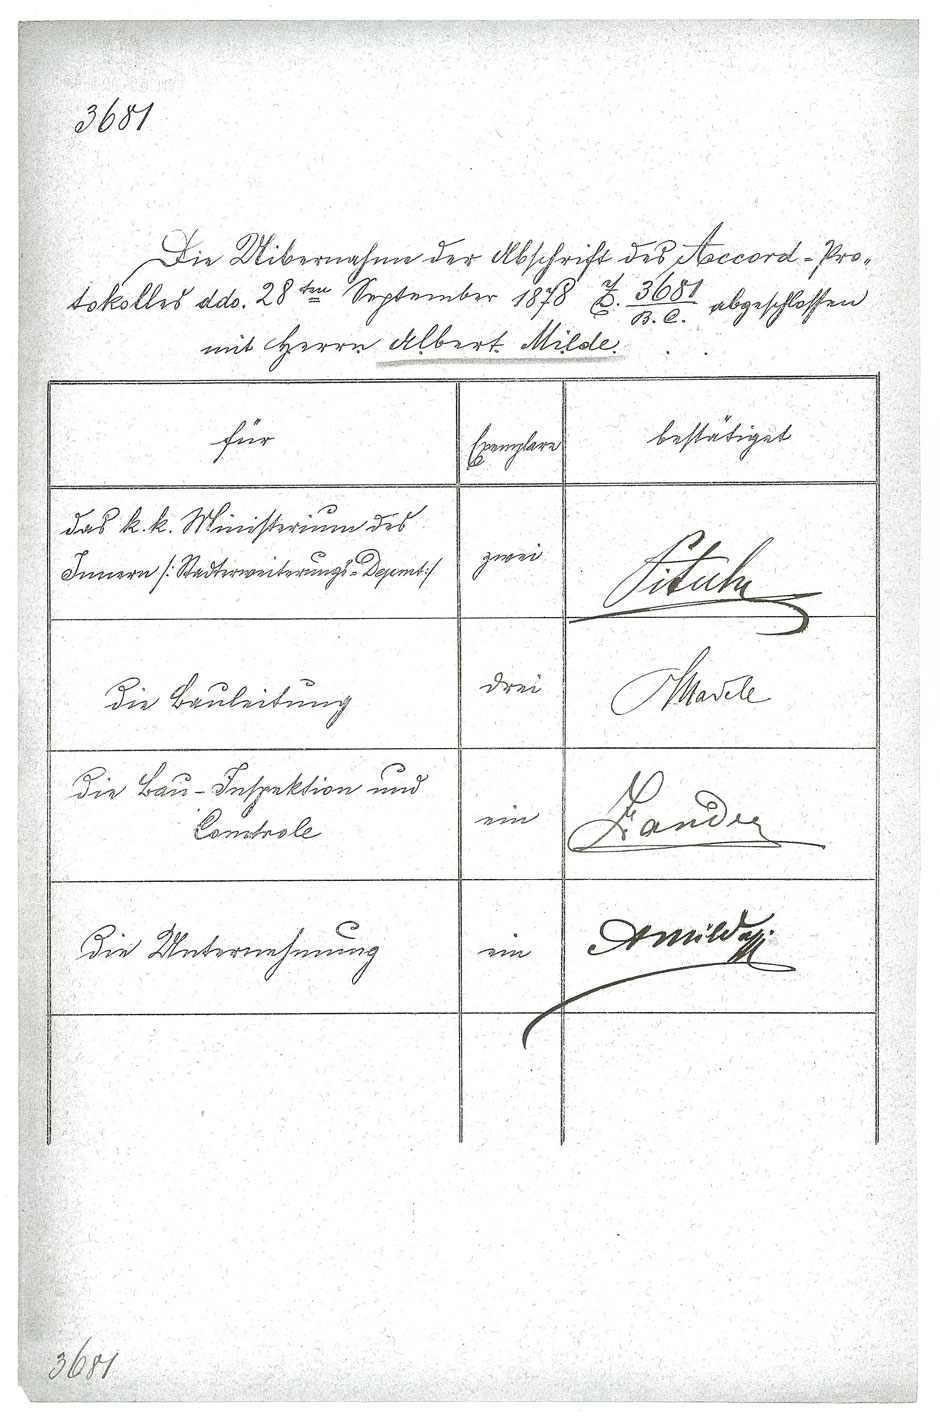 3681
Die Uibernahme der Abschrift des Accord-Pro-
tokolles ddo. 28ten September 1878 Z. 3681/B.C. abgeschlossen
mit Herrn Albert Milde.
für Exemplare bestätiget
das k. k. Ministerium des
Innern /: Stadterweiterungs-Depmt :/ zwei
die Bauleitung drei
die Bau-Inspektion und
Controle ein
die Unternehmung ein AMilde
3681